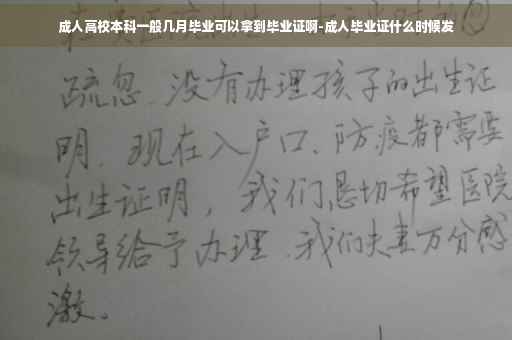 成人高校本科一般几月毕业可以拿到毕业证啊-成人毕业证什么时候发
疏忽、没有办理孩子的出生证
明、现在入户口、防疫都需要
出生证明，我们恳切希望医院
领导给予办理、我们夫妻万分感
激。